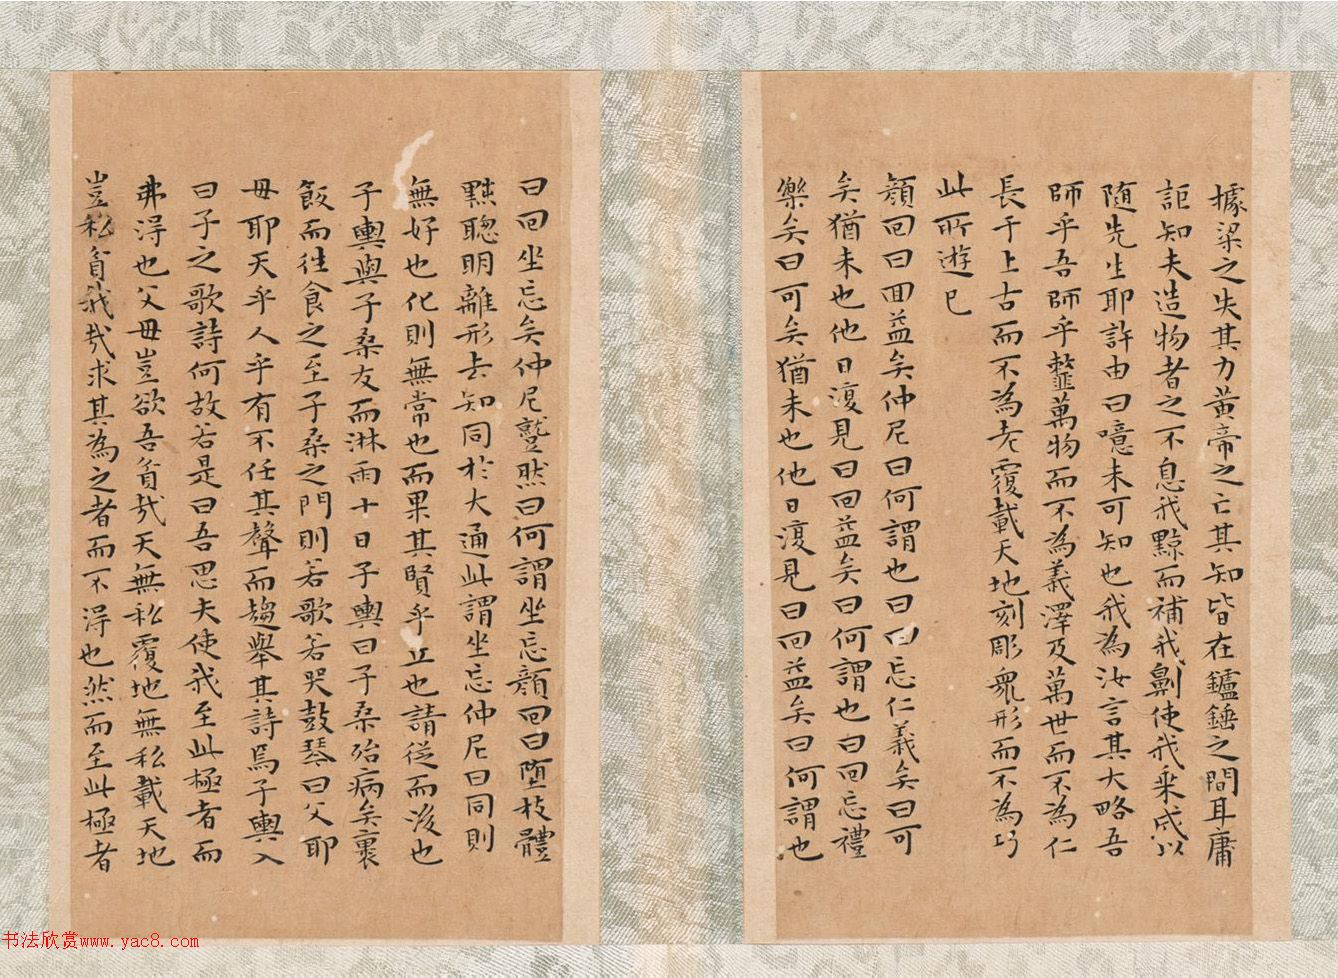 據梁之失其力黃帝之亡其知皆在鑪錘之間耳庸
詎知夫造物者之不息我黥而補我劓使我乘成以
随先生耶許由曰噫未可知也我為汝言其大略吾
師乎吾師乎䪠萬物而不為義澤及萬世而不為仁
長于上古而不為老覆載天地刻彫衆形而不為巧
此所遊已
顏回曰回益矣仲尼曰何謂也曰回忘仁義矣曰可
矣猶未也他日復見曰回益矣曰何謂也曰回忘禮
樂矣曰可矣猶未也他日復見曰回益矣曰何謂也
曰回坐忘矣仲尼蹵然曰何謂坐忘顏回曰堕枝體
黜聰明離形去知同於大通此謂坐忘仲尼曰同則
無好也化則無常也而果其賢乎丘也請從而後也
子輿與子桑友而淋雨十日子輿曰子桑殆病矣裹
飯而往食之至子桑之門則若歌若哭鼓琴曰父耶
母耶天乎人乎有不任其聲而趨舉其詩焉子輿入
曰子之歌詩何故若是曰吾思夫使我至此極者而
弗得也父母豈欲吾貧哉天無私覆地無私載天地
豈私貧我哉求其為之者而不得也然而至此極者
书法欣赏www.yac8.com